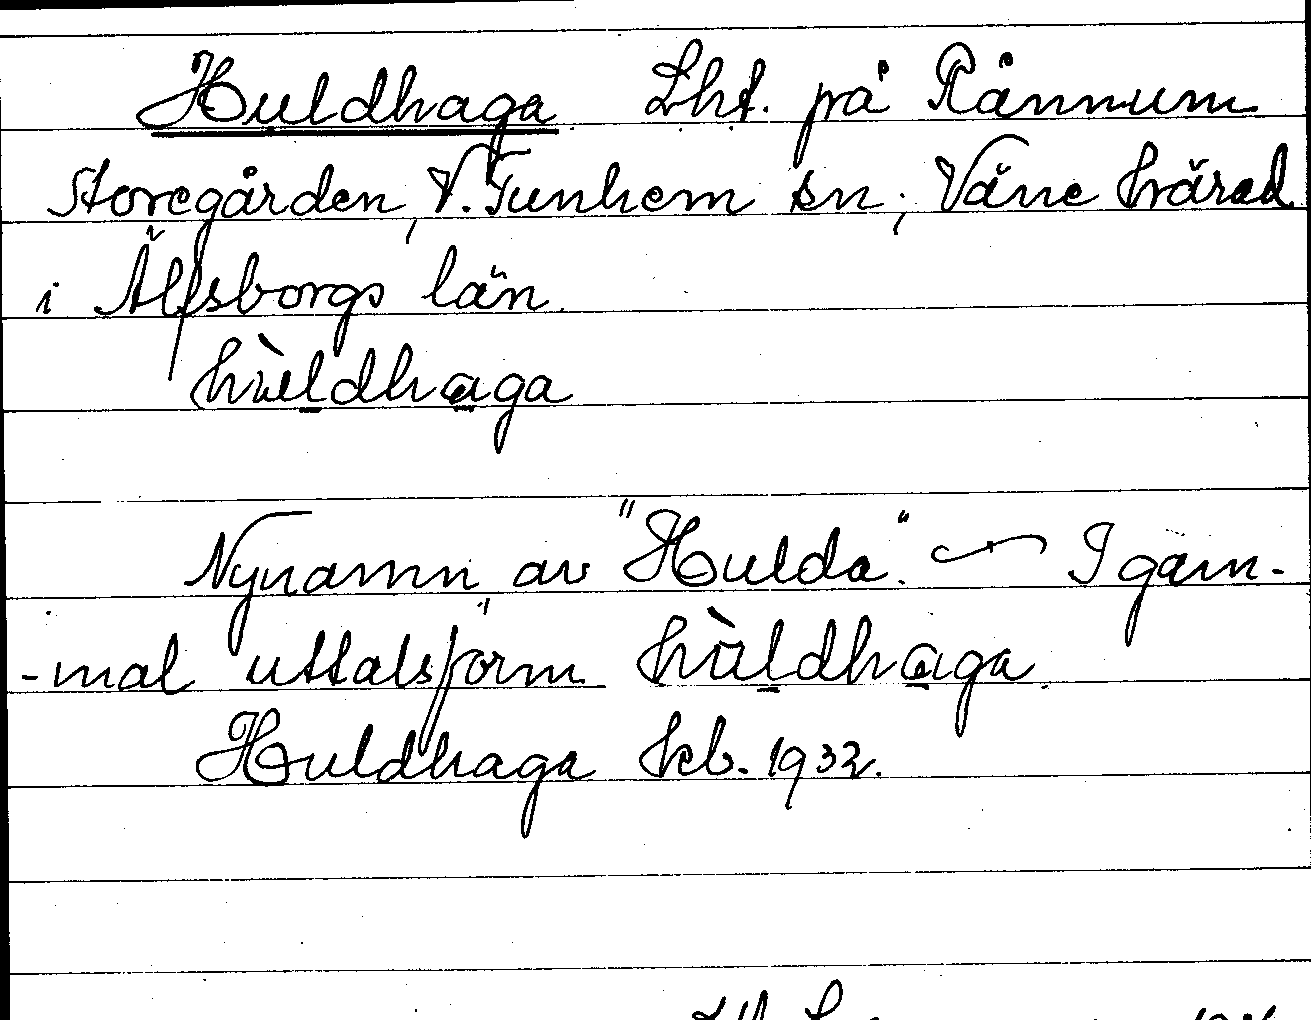 Huldhaga Lht. på Rånnum
Storegården, V. Tunhem sn; Väne härad
i Älfsborgs län.
hùldhaga
Nynamn av "Hulda". — I gam-
-mal uttalsform hùldhaga.
Huldhaga kb. 1932.